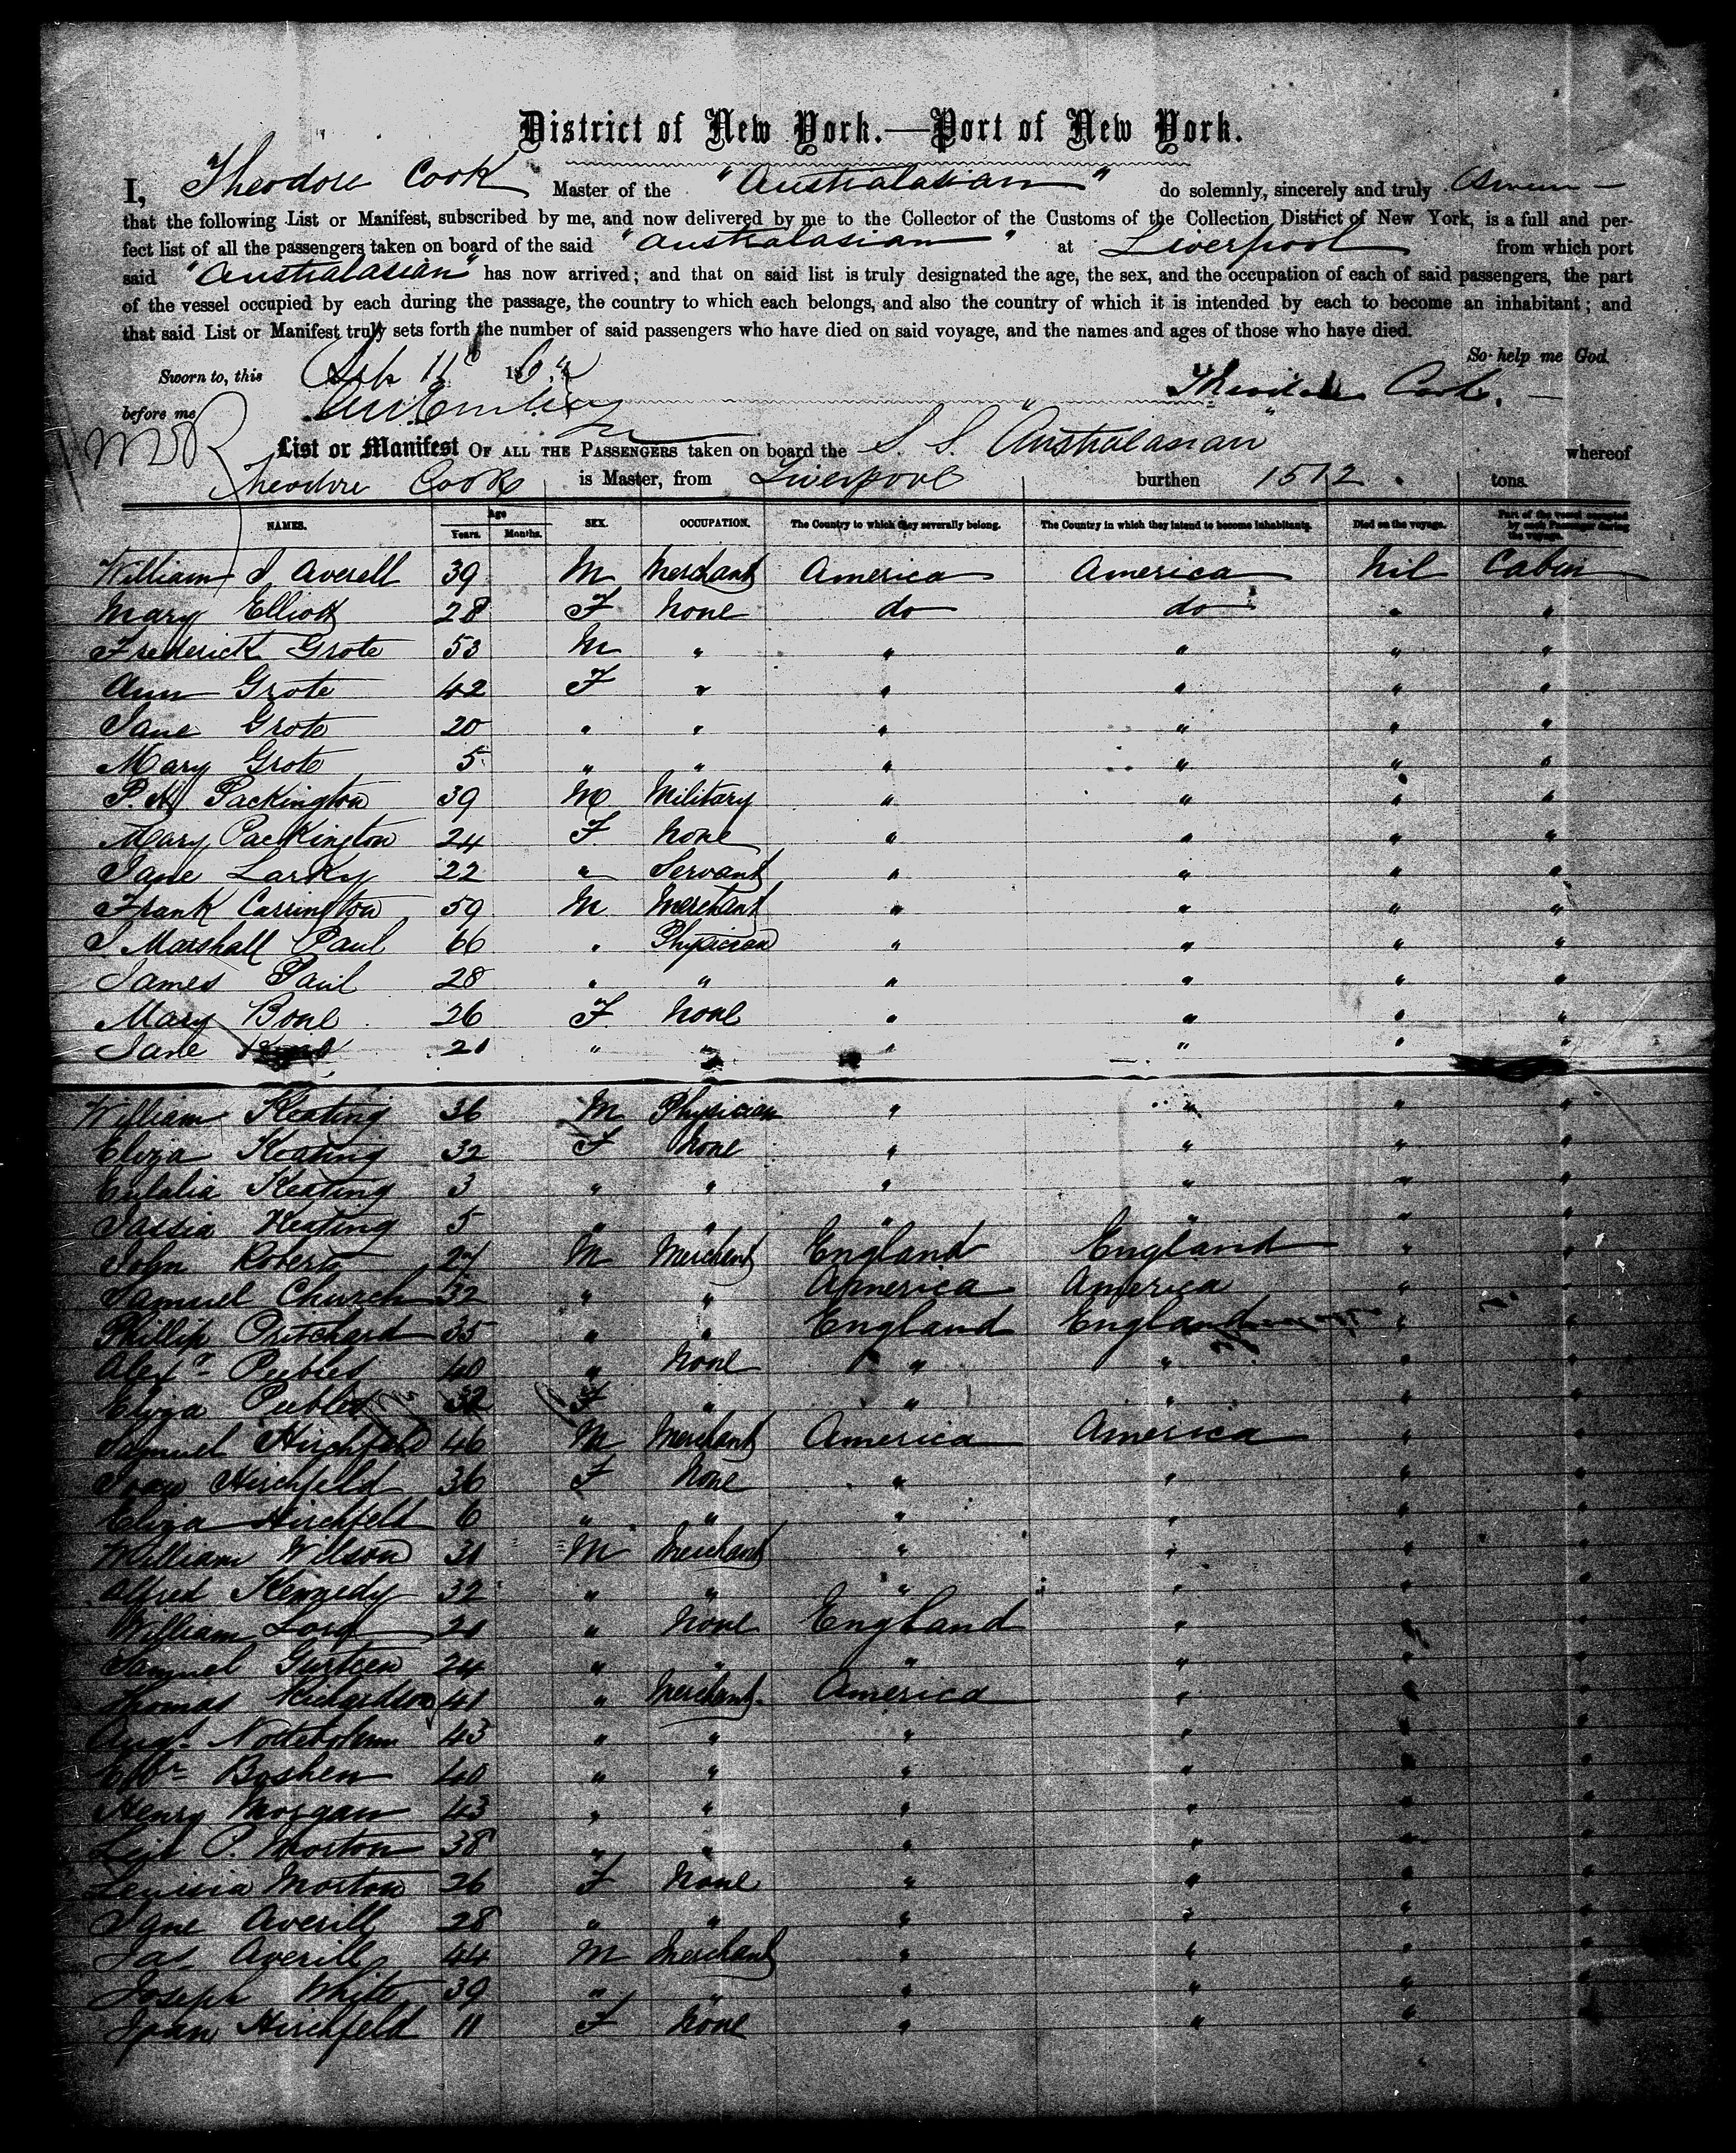 District of New York.—Port of New York.
I, Theodore Cook Master of the "Australasian" do solemnly, sincerely and truly Swear
that the following List or Manifest, subscribed by me, and now delivered by me to the Collector of the Customs of the Collection District of New York, is a full and per-
fect list of all the passengers taken on board of the said "Australasian" at Liverpool from which port
said "Australasian" has now arrived; and that on said list is truly designated the age, the sex, and the occupation of each of said passengers, the part
of the vessel occupied by each during the passage, the country to which each belongs, and also the country of which it is intended by each to become an inhabitant; and
that said List or Manifest truly sets forth the number of said passengers who have died on said voyage, and the names and ages of those who have died.
So help me God.
Sworn to, this 11 186 Theodore Cook.
before me
List or Manifest OF ALL THE PASSENGERS taken on board the S. S. "Australasian" whereof
Theodore Cook is Master, from Liverpool burthen 1512 tons.
NAMES. Age Years. Months. SEX. OCCUPATION. The Country to which they severally belong. The Country in which they intend to become inhabitants. Died on the voyage. Part of the vessel occupied by each Passenger during the voyage.
William J Averell 39 M Merchant America America Nil Cabin
Mary Elliott 28 F None do do " "
Frederick Grote 53 M " " " " "
Ann Grote 42 F " " " " "
Jane Grote 20 " " " " " "
Mary Grote 5 " " " " " "
P. H Packington 39 M Military " " " "
Mary Packington 24 F None " " " "
Jane Larky 22 " Servant " " " "
Frank Carrington 59 M Merchant " " " "
J Marshall Paul 66 " Physician " " " "
James Paul 28 " " " " " "
Mary Bone 26 F None " " " "
Jane 21 " " " " " "
William Keating 36 M Physician " " " "
Eliza Keating 32 F None " " " "
Eulalia Keating 3 " " " " " "
Keating 5 " " " " " "
John Roberts 27 M Merchant England England " "
Samuel Church 32 " " America America " "
Phillip Pritchard 35 " " England England " "
Alexr Peebles 40 " None " " " "
Eliza Peebles 32 F " " " " "
Samuel Hirchfeld 46 M Merchant America America " "
Hirchfeld 36 F None " " " "
Eliza Hirchfeld 6 " " " " " "
William Wilson 31 M Merchant " " " "
Alfred Kennedy 32 " " " " " "
William Lord 21 " None England " " "
Samuel Gurteen 24 " " " " " "
Thomas Richardson 41 " Merchant America " " "
Augt Nottebohm 43 " " " " " "
Boshen 40 " " " " " "
Henry Morgan 43 " " " " " "
Levi P. Morton 38 " " " " " "
Morton 26 F None " " " "
Jane Averill 28 " " " " " "
Jas Averill 44 M Merchant " " " "
Joseph White 39 " " " " " "
Joan Hirchfeld 11 F None " " " "